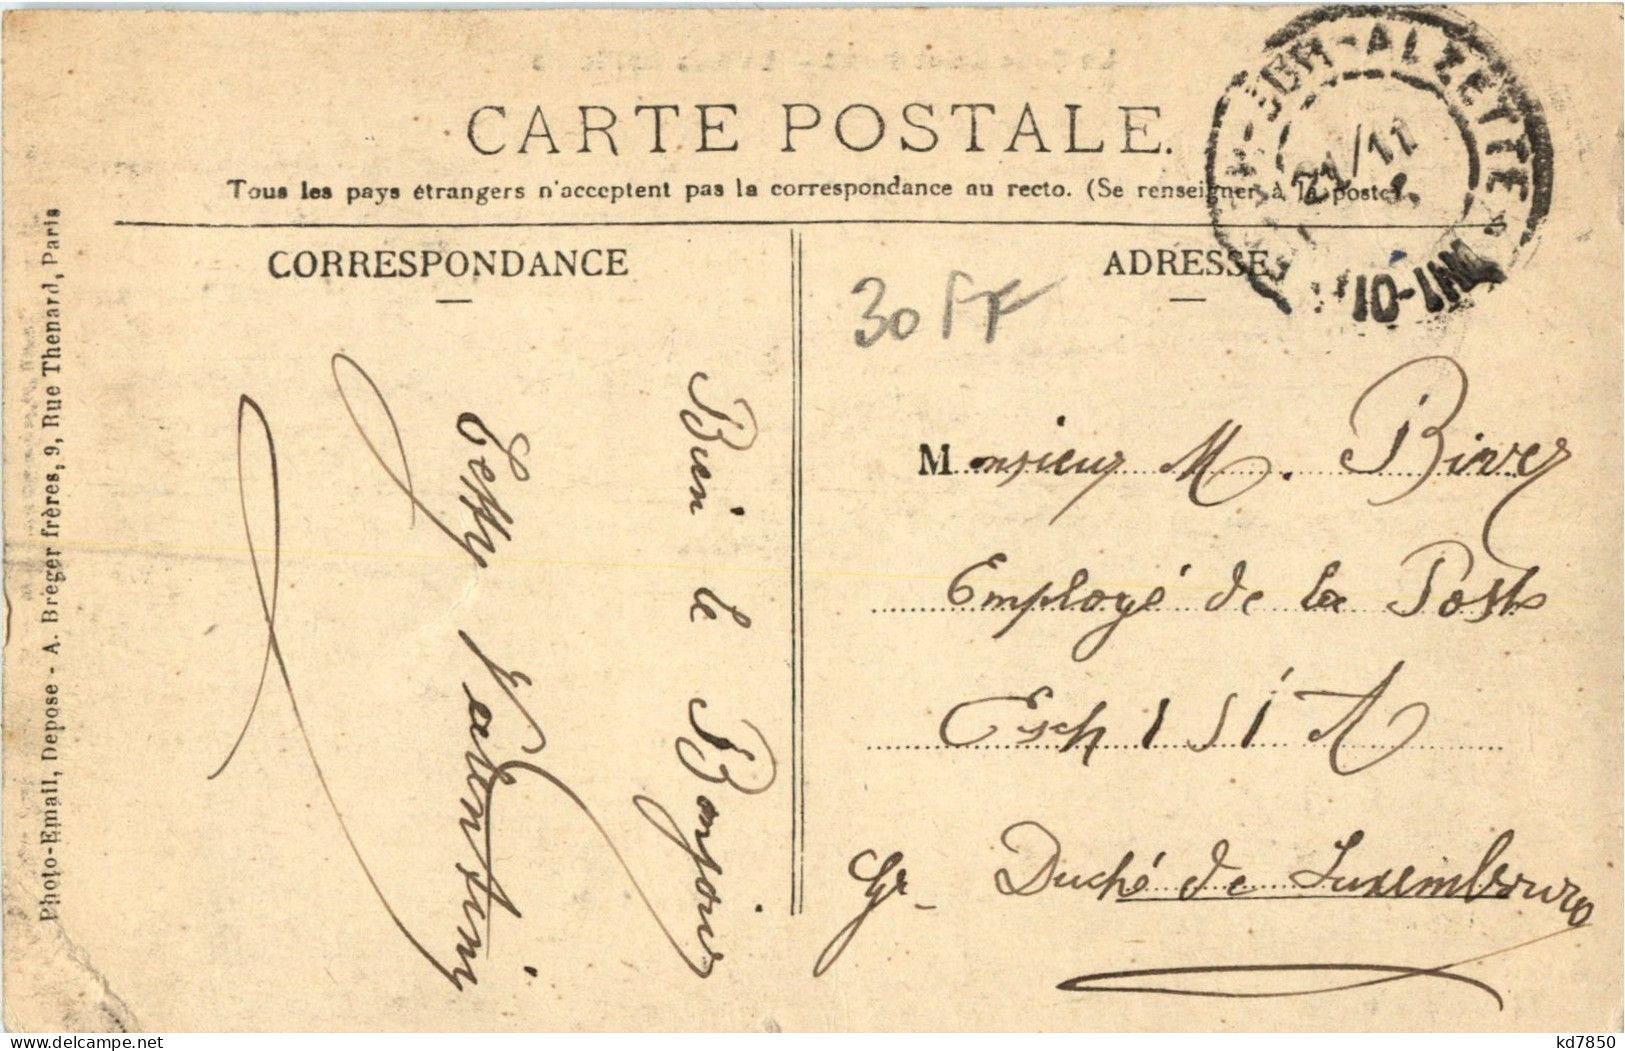 CARTE POSTALE.
Tous les pays étrangers n'acceptent pas la correspondance au recto. (Se renseigner à la poste).
CORRESPONDANCE
ADRESSE
ALZETTE
21/11
10-11
30 FF
Bien le Bonjour
Monsieur M. Bives
Employé de la Poste
Esch 1 S 1 A
Gr. Duché de Luxembourg
Photo-Email, Depose - A. Breger frères, 9, Rue Thenard, Paris
kd7850